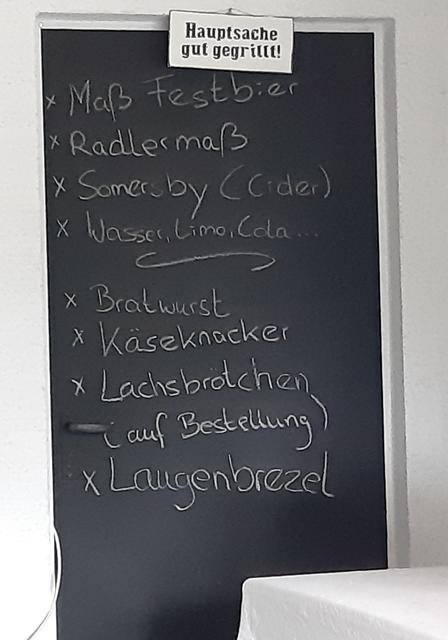 Hauptsache
gut gegrillt!
x Maß Festbier
x Radlermaß
x Somersby (Cider)
x Wasser, Limo, Cola...
x Bratwurst
x Käseknacker
x Lachsbrötchen
(auf Bestellung)
x Laugenbrezel